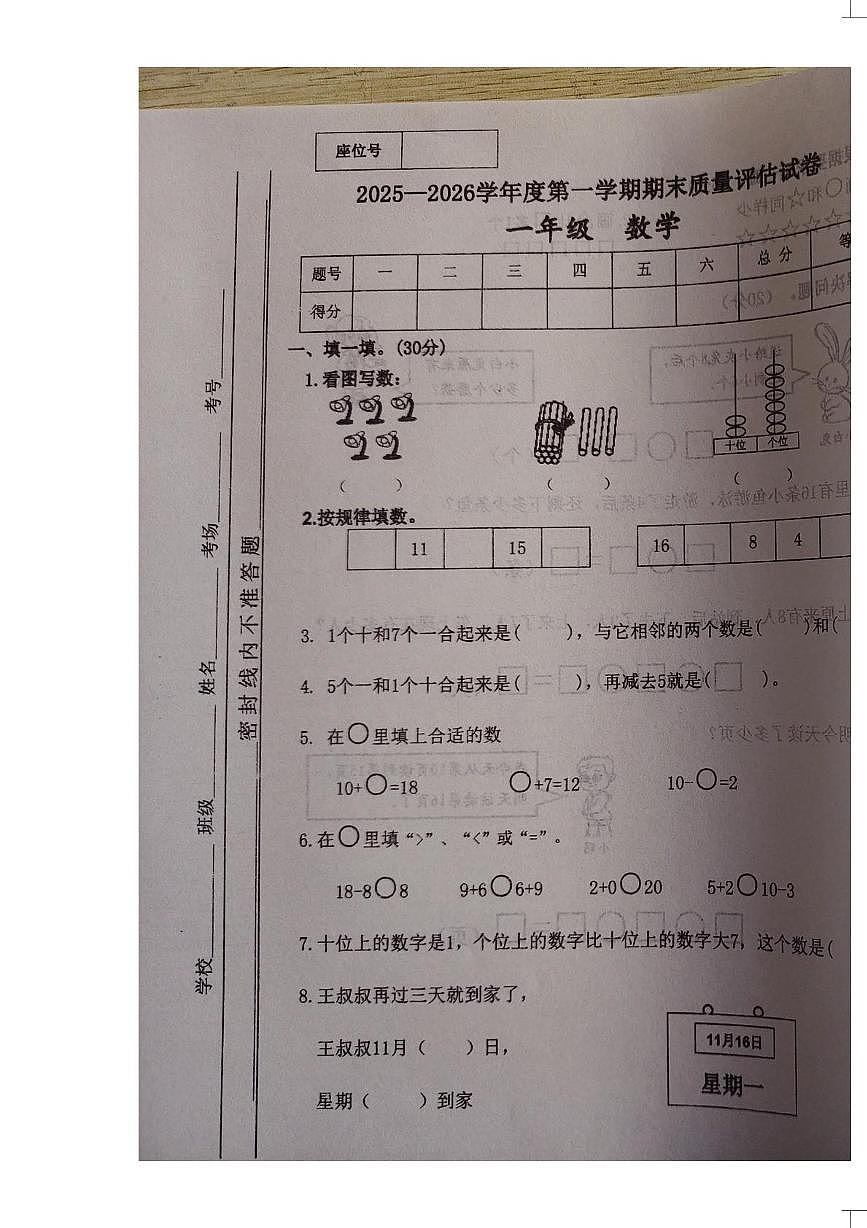 座位号
2025—2026学年度第一学期期末质量评估试卷
一年级 数学
题号 一 二 三 四 五 六 总分 等
得分
一、填一填。(30分)
1.看图写数：
十位 个位
( ) ( ) ( )
2.按规律填数。
11 15 16 8 4
3. 1个十和7个一合起来是( )，与它相邻的两个数是( )和(
4. 5个一和1个十合起来是( )，再减去5就是( )。
5. 在○里填上合适的数
10+○=18 ○+7=12 10-○=2
6.在○里填“>”、“<”或“=”。
18-8○8 9+6○6+9 2+0○20 5+2○10-3
7.十位上的数字是1，个位上的数字比十位上的数字大7，这个数是(
8.王叔叔再过三天就到家了，
王叔叔11月( )日，
星期( )到家
11月16日
星期一
学校 班级 姓名 考场 考号
密封线内不准答题